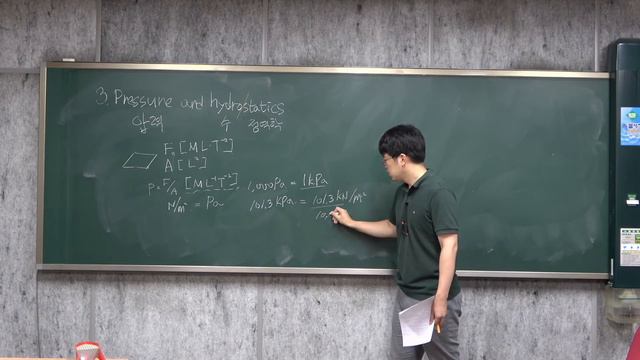 3. Pressure and hydrostatics
압력 수 정역학
F, [MLT⁻²]
A [L²]
P = F/A [ML⁻¹T⁻²] 1,000Pa = 1kPa
N/m² = Pa 101.3 kPa = 101.3 kN/m²
10,